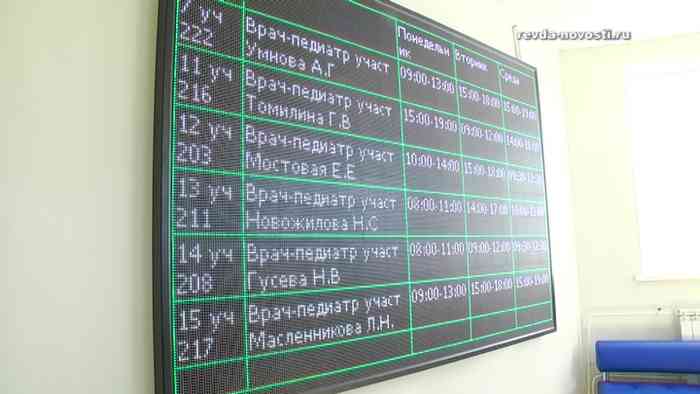 revda-novosti.ru
Понедельн
ик
Вторник
Среда
7 уч
222
Врач-педиатр участ
Умнова А.Г
09:00-13:00
15:00-18:00
15:00-19:00
11 уч
216
Врач-педиатр участ
Томилина Г.В
15:00-19:00
09:00-12:00
12 уч
203
Врач-педиатр участ
Мостовая Е.Е
10:00-14:00
15:00-18:00
09:30-12:30
13 уч
211
Врач-педиатр участ
Новожилова Н.С
08:00-11:00
14:00-17:00
14 уч
208
Врач-педиатр участ
Гусева Н.В
08:00-11:00
09:00-12:00
09:30-12:30
15 уч
217
Врач-педиатр участ
Масленникова Л.Н.
09:00-13:00
15:00-18:00
15:00-19:00